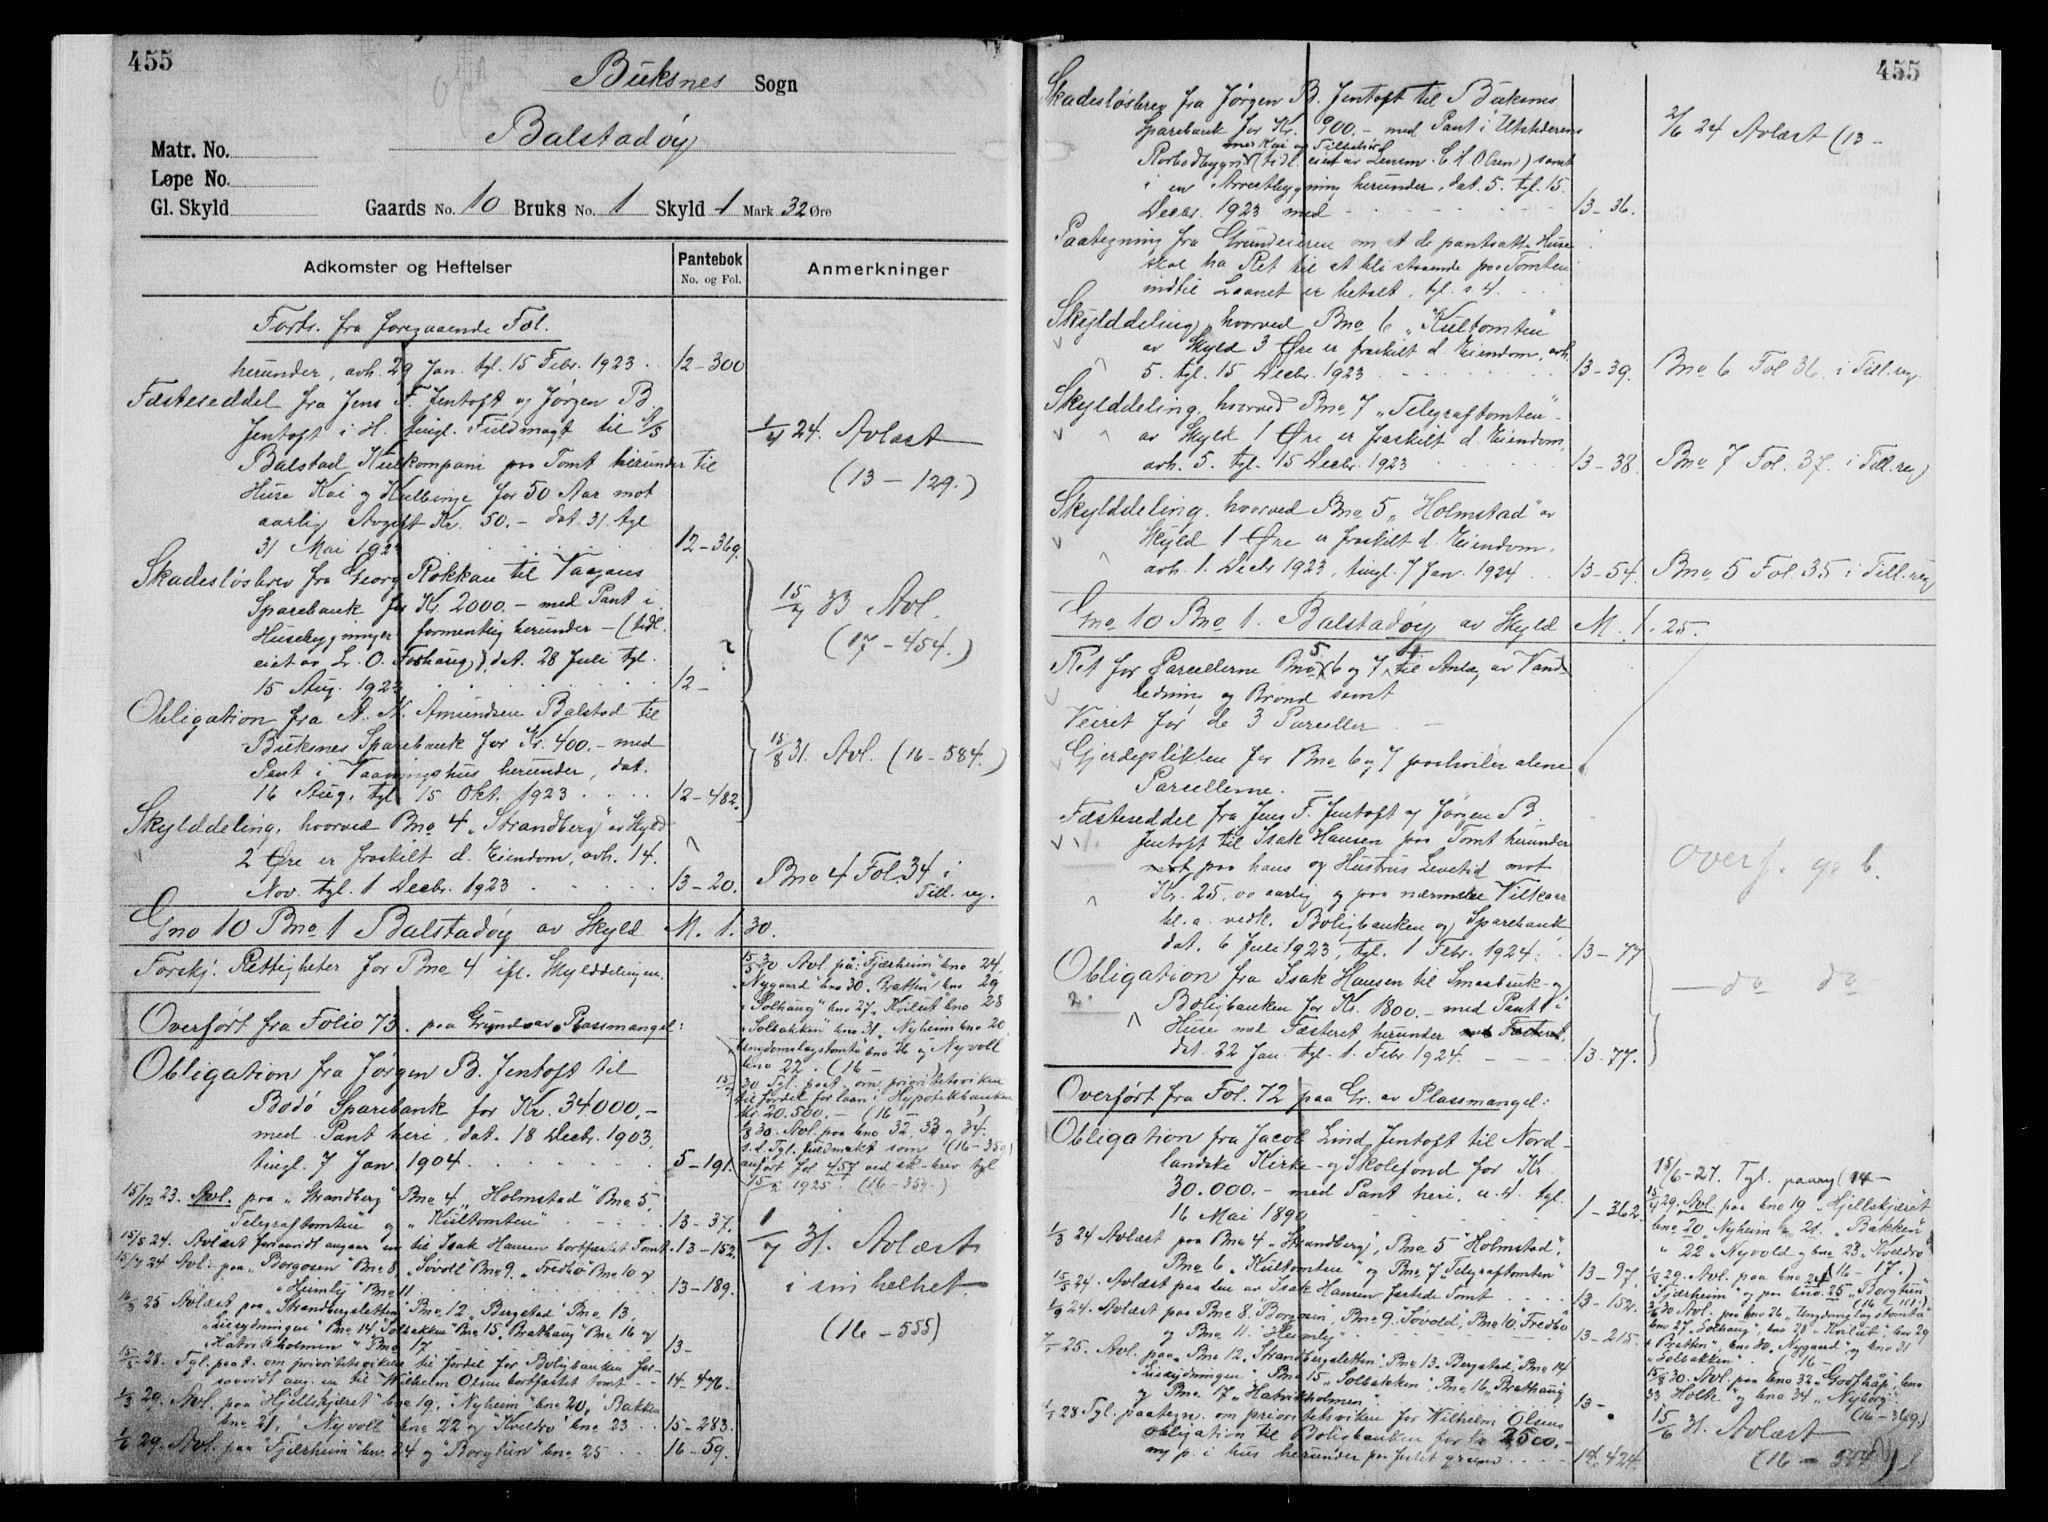 455
Buksnes Sogn
Balstadøy
Matr. No.
Løpe No.
Gl. Skyld Gaards No. 10 Bruks No. 1 Skyld 1 Mark 32 Øre
Adkomster og Heftelser Pantebok No. og Fol. Anmerkninger
Forts. fra foregaaende Fol.
herunder, avh. 29 Jan. tgl. 15 Febr. 1923 . 12-300
Fæsteseddel fra Jens F. Jentoft og Jørgen B.
Jentoft i H. tingl. Fuldmagt til A/S
Balstad Kulkompani paa Tomt herunder til
Huse Kai og Kulbinge for 50 Aar mot
aarlig Avgift Kr. 50.- dat. 31 tgl
31 Mai 1923 12-369.
1/4 24. Avlæst
(13-129.)
Skadesløsbrev fra Georg Rokkan til Vaagans
Sparebank for Kr. 2000.- med Pant i
Husebygninger formentlig herunder - (tidl.
eiet av L. O. Foshaug), dat. 28 Juli tgl.
15 Aug. 1923 12-
15/7 33 Avl.
(17-454.)
Obligation fra A. N. Amundsen Balstad til
Buksnes Sparebank for Kr. 400.- med
Pant i Vaaningshus herunder, dat.
16 Aug. tgl. 15 Okt. 1923 12-482.
15/8 31. Avl. (16-584.)
Skylddeling, hvorved Bno 4 „Strandberg" av Skyld
2 Øre er fraskilt d. Eiendom, avh. 14.
Nov. tgl. 1 Decbr. 1923 13-20.
Bno 4 Fol. 34 i
Till. reg.
Gno 10 Bno 1 Balstadøy av Skyld M. 1.30.
Forskj. Rettigheter for Bno 4 ifl. Skylddelingen.
Overført fra Folio 73. paa Grund av Plassmangel:
Obligation fra Jørgen B. Jentoft til
Bodø Sparebank for Kr. 34000,-
med Pant heri, dat. 18 Decbr. 1903,
tingl. 7 Jan. 1904 5-191.
15/12 23. Avl. paa „Strandberg" Bno 4, „Holmstad" Bno 5,
Telegraftomten" og „Kultomten" 13-37.
15/3 24. Avlæst forsaavidt angaar en til Isak Hansen bortfæstet Tomt. 13-152.
15/4 24 Avl. paa „Borgosen" Bno 8, „Søvoll" Bno 9, „Fredbo" Bno 10 og
„Heimly" Bno 11 13-189.
16/3 25 Avlæst paa „Strandbergsletten" Bno 12, „Bergstad" Bno 13,
„Lierydningen" Bno 14 „Solbakken" Bno 15, Brathaug" Bno 16 og
Hatvikholmen" Bno 17 13-
28. Tgl. paat. om prioritetsvikelse til fordel for Boligbanken for-
saavidt ang. en til Wilhelm Olsen bortfæstet tomt 14-476.
1/3 29. Avl. paa "Hjellskjæret" bno 19, "Nyheim" bno 20, "Bakken
bno 21, "Nyvoll" bno 22 og "Kveldro" bno 23 15-283.
1/6 29. Avl. paa "Fjærheim" bno. 24 og "Borgtun" bno 25 16-59.
15/5 30 Avl. på: "Fjærheim" bno 24,
"Nygaard" bno 30. "Bratten" bno 29
"Solhaug" bno 27, "Kvilut" bno 28
"Solbakken" bno 31, "Nyheim bno 20
Ungdomslagstomta" bno 26 og "Nyvoll"
bno 22. (16-
30 Tgl. paat. om prioritetsviken
til fordel for laan i Hypotekbanken
kr. 20.500.- (16-
1/8 30. Avl. paa bno 32, 33 og 34.
s. d. Tgl. fuldmakt som (16-359)
anført fol. 457 ved sk.-brev tgl
1925. (16-359.)
1/7 31. Avlæst
i sin helhet
(16-555)
455
Skadesløsbrev fra Jørgen B. Jentoft til Buksnes
Sparebank for Kr. 900.- med Pant i
med Kai og Tilbehør
Rorbodbygn. (tidl. eiet av Lensm. C. H. Olsen) samt
i en Arrestbygning herunder, dat. 5. tgl. 15.
Decbr. 1923 med 13-36.
2/6 24 Avlæst (13-
Paategning fra Grundeieren om at de pantsatte Huse
skal ha Ret til at bli staaende paa Tomten
indtil Laanet er betalt, tgl. s. d.
Skylddeling, hvorved Bno 6 „Kultomten"
av Skyld 3 Øre er fraskilt d. Eiendom, avh.
5. tgl. 15 Decbr. 1923 13-39. Bno 6 Fol 36. i Till. reg.
Skylddeling, hvorved Bno 7 „Telegraftomten"
av Skyld 1 Øre er fraskilt d. Eiendom,
avh. 5. tgl. 15 Decbr. 1923 13-38. Bno 7 Fol. 37. i Till. reg
Skylddeling, hvorved Bno 5 „Holmstad" av
Skyld 1 Øre er fraskilt d. Eiendom,
avh. 1. Decbr 1923, tingl. 7 Jan. 1924 13-54. Bno 5 Fol. 35 i Till. reg
Gno 10 Bno 1. Balstadøy av Skyld M. 1.25.
Ret for Parcellerne Bno 5, 6 og 7 til Anlæg av Vand-
ledning og Brønd samt
Veiret for de 3 Parceller
Gjerdeplikten for Bno 6 og 7 paahviler alene
Parcellerne.
Fæsteseddel fra Jens F. Jentoft og Jørgen B.
Jentoft til Isak Hansen paa Tomt herunder
paa hans og Hustrus Levetid mot
Kr. 25,00 aarlig og paa nærmere Vilkaar
bl. a. vedk. Boligbanken og Sparebank
dat. 6 Juli 1923, tgl. 1 Febr. 1924 13-77
overf. gb 6.
Obligation fra Isak Hansen til Smaabruk- og
Boligbanken for Kr. 1800.- med Pant i
Huse med Fæsteret herunder
dat. 22 Jan. tgl. 1. Febr. 1924 13-77.
do do
Overført fra Fol. 72 paa Gr. av Plassmangel:
Obligation fra Jacob Lind Jentoft til Nord-
landske Kirke- og Skolefond for Kr.
30.000.- med Pant heri, u. d. tgl.
16 Mai 1890 1-362.
1/3 24 Avlæst paa Bno 4 „Strandberg", Bno 5 "Holmstad",
Bno 6 „Kultomten" og Bno 7 „Telegraftomten" 13-97.
15/3 24. Avlæst paa den av Isak Hansen fæstede Tomt 13-152.
24. Avlæst paa Bno 8 "Borgosen", Bno 9 "Søvold", Bno 10 "Fredbo
og Bno 11 "Heimly" 13-215.
25. Avl. paa Bno 12 „Strandbergsletten", Bno 13 Bergstad", Bno 14
„Lierydningen" Bno 15 „Solbakken", Bno 16, Brathaug
og Bno 17 „Hatvikholmen" 13-
28 Tgl. paategn. om prioritetsviken for Wilhelm Olsens
obligation til Boligbanken for kr 2500.-
m/p. i hus herunder paa festet grunn 14-424.
15/6-27. Tgl. paateg (14-
29. Avl. paa bno 19 „Hjellskjæret
bno 20 „Nyheim" „ 21. „Bakken"
„ 22 „Nyvold og bno 23 „Kveldro
(16-17.)
29. Avl. paa bno 24
"Fjærheim" og paa bno. 25 „Borgtun"
(16-111.)
30 Avl. paa bno 26 "Ungdomslagstomta"
bno 27 "Solhaug", bno 28 "Kvilut", bno 29
"Bratten", bno 30. Nygaard" og bno 31
"Solbakken". (16-
15/8 30. Avl. paa bno 32 „Godthåp", bno
33 „Holte" og bno 34 „Nyborg".
(16-369.)
15/6 31. Avlæst
(16-544)